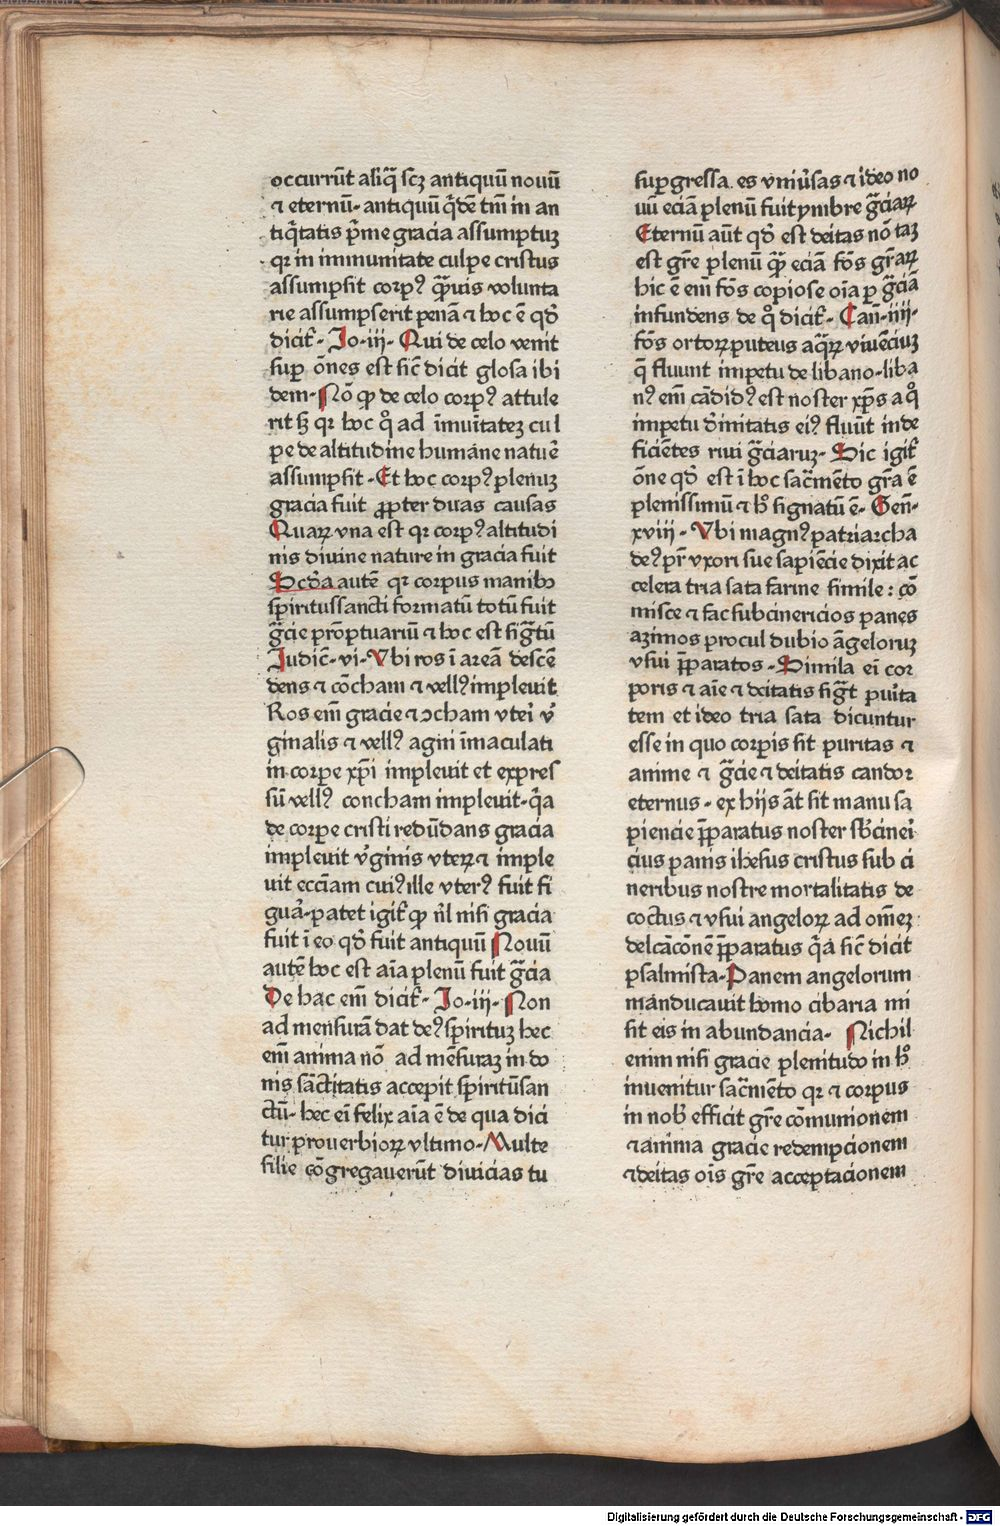 occurrūt aliq̄ scꝫ antiquū nouū
⁊ eternū· antiquū q̄dē tm̄ in an
tiq̄tatis p̄me gracia assumptuꝫ
qꝛ in immunitate culpe cristus
assumpsit corpꝰ q̄uis volunta
rie assumpserit penā ⁊ hoc ē qd̄
dicit᷑· Io·iii· Qui de celo venit
suꝑ ōnes est sic̄ dicit glosa ibi
dem· Nō ꝙ de celo corpꝰ attule
rit sꝫ qꝛ hoc q̊ ad īmuītateꝫ cul
pe de altitudine humane natu᷑e
assumpsit· Et hoc corpꝰ plenuꝫ
gracia fuit ꝓpter duas causas
Quaꝝ vna est qꝛ corpꝰ altitudi
nis divine nature in gracia fuit
Scd̄a autē qꝛ corpus manibꝫ
spiritussancti formatū totū fuit
gr̄cie prōptuariū ⁊ hoc est sigr̄tū
Judic̄· vi· Vbi ros ī areā descē
dens ⁊ cōcham ⁊ vellꝰ implevit
Ros em̄ gracie ⁊ ↄcham vteı᷑ v᷑
ginalis ⁊ vellꝰ agni īmaculati
in corpe xp̄i implevit et expres
sū vellꝰ concham implevit· q̄a
de corpe cristi redūdans gracia
implevit v᷑ginis vteꝝ ⁊ imple
vit ecciam cuiꝰ ille vterꝰ fuit fi
gua᷑· patet igit᷑ ꝙ nı̄l nisi gracia
fuit ī eo qd̄ fuit antiquū Nouū
autē hoc est aīa plenū fuit gr̄cia
De hac em̄ dicit᷑· Io·iii· Non
ad mensurā dat deꝰ spirituꝫ hec
em̄ anima nō ad mēsuraꝫ in do
nis sāctitatis accepit spiritūsan
ctū· hec eī felix aīa ē de qua dici
tur proverbioꝝ vltimo· Multe
filie cōgregaverūt divicias tu
suꝑgressa es vniu᷑sas ⁊ ideo no
uū eciā plenū fuit ymbre gr̄ciaꝝ
Eternū aūt qd̄ est deitas nō taꝫ
est gr̄e plenū q̄ꝫ eciā fōs gr̄aꝝ
hic ē em̄ fōs copiose oīa ꝑ gr̄ciā
infundens de q̊ dicit᷑· Can̄·iiii·
fōs ortoꝝ puteus aq̄ꝝ viuēciuꝫ
q̄ fluunt impetu de libano· liba
nꝰ em̄ cādidꝰ est noster xp̄s a q̊
impetu d᷑initatis eiꝰ fluūt inde
ficiētes rivi gr̄ciaruꝫ· Sic igit᷑
ōne qd̄ est ī hoc sac̄mēto gr̄a ē
plenissimū ⁊ h̊ signatū ē· Gen̄·
xviii· Vbi magnꝰ patriarcha
deꝰ pr̄ vxori sue sapiēcie dixit ac
celera tria sata farine simile: cō
misce ⁊ fac subcinericios panes
azimos procul dubio āgeloruꝫ
vsui p̄paratos· Simila eī cor
poris ⁊ aīe ⁊ deitatis sigr̄t puı᷑ta
tem et ideo tria sata dicuntur
esse in quo corpis sit puritas ⁊
anime ⁊ gr̄cie ⁊ deitatis candoꝛ
eternus· ex hijs āt sit manu sa
piencie p̄paratus noster sb̄cineı᷑
cius panis ihesus cristus sub ci
neribus nostre mortalitatis de
coctus ⁊ vsui angeloꝝ ad om̄eꝫ
delcācōnē p̄paratus q̄a sic̄ dicit
psalmista· Panem angelorum
manducavit homo cibaria mi
sit eis in abundancia· Nichil
enim nisi gracie plenitudo in h̊
invenitur sac̄mēto qꝛ ⁊ corpus
in nob̄ efficit gr̄e cōmunionem
⁊ anima gracie redempcionem
⁊ deitas oīs gr̄e acceptacionem
Digitalisierung gefördert durch die Deutsche Forschungsgemeinschaft - DFG